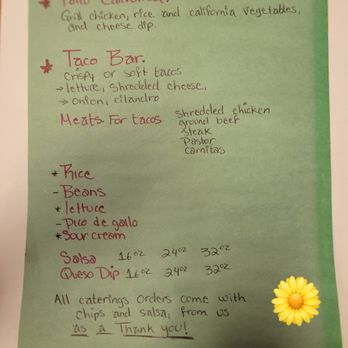 Grill chicken, rice and california vegetables,
and cheese dip.
* Taco Bar.
crispy or soft tacos
→ lettuce, shredded cheese,
→ onion, cilandro
Meats For tacos shredded chicken
ground beef
steak
Pastor
carnitas
* Rice
- Beans
* lettuce
- Pico de gallo
* Sour cream
Salsa 16oz 24oz 32oz
Queso Dip 16oz 24oz 32oz
All caterings orders come with
chips and salsa, from us
as a Thank you!